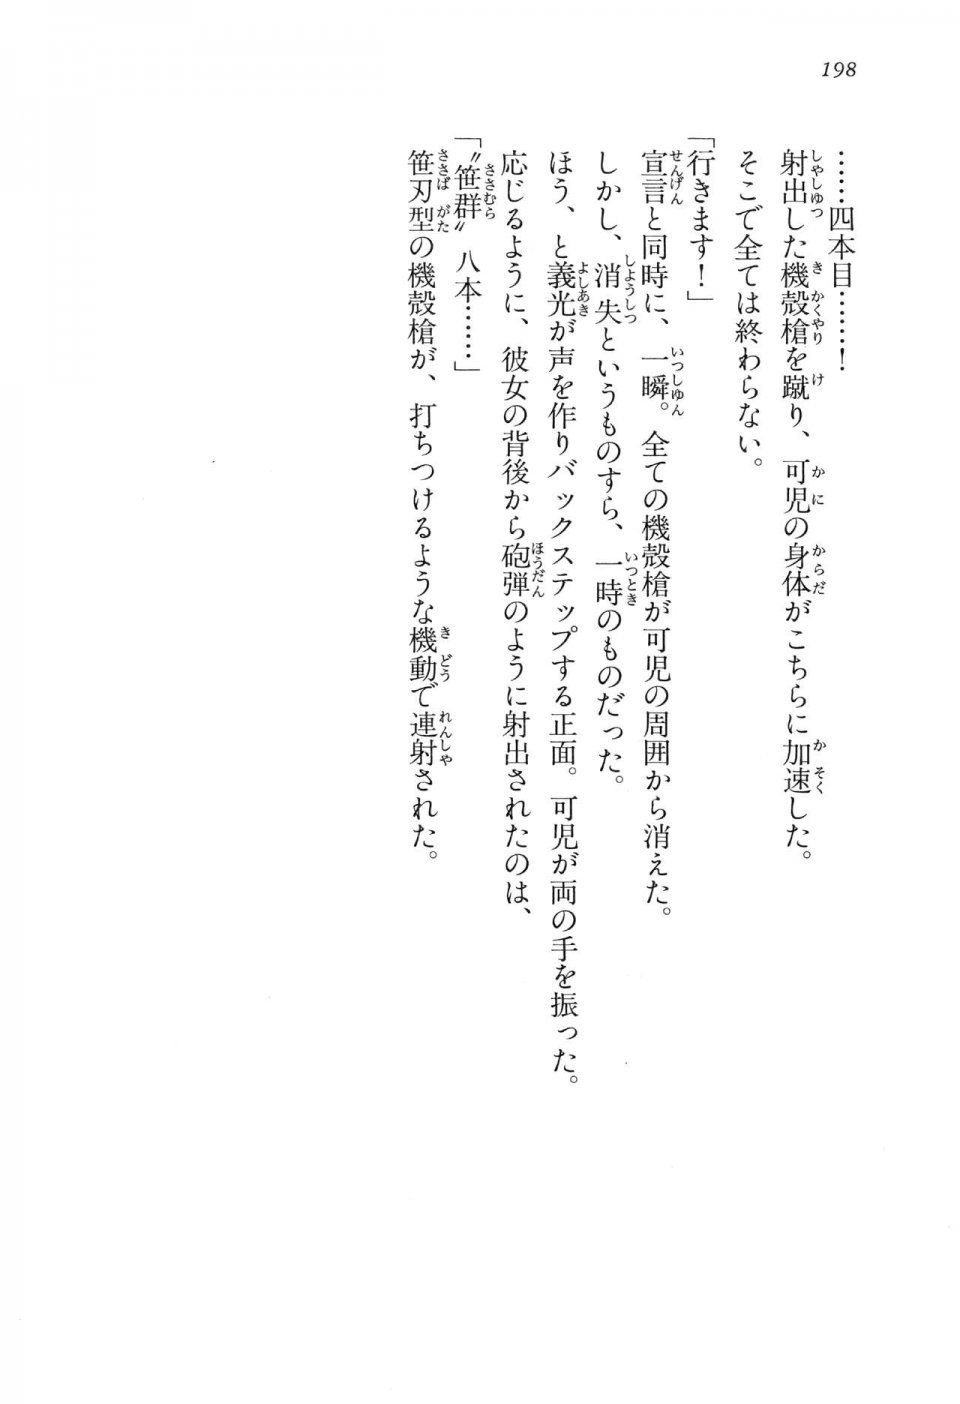 198
……四本目……！
射出した機殻槍を蹴り、可児の身体がこちらに加速した。
そこで全ては終わらない。
「行きます！」
宣言と同時に、一瞬。全ての機殻槍が可児の周囲から消えた。
しかし、消失というものすら、一時のものだった。
ほう、と義光が声を作りバックステップする正面。可児が両の手を振った。
応じるように、彼女の背後から砲弾のように射出されたのは、
「〝笹群〟八本……」
笹刃型の機殻槍が、打ちつけるような機動で連射された。